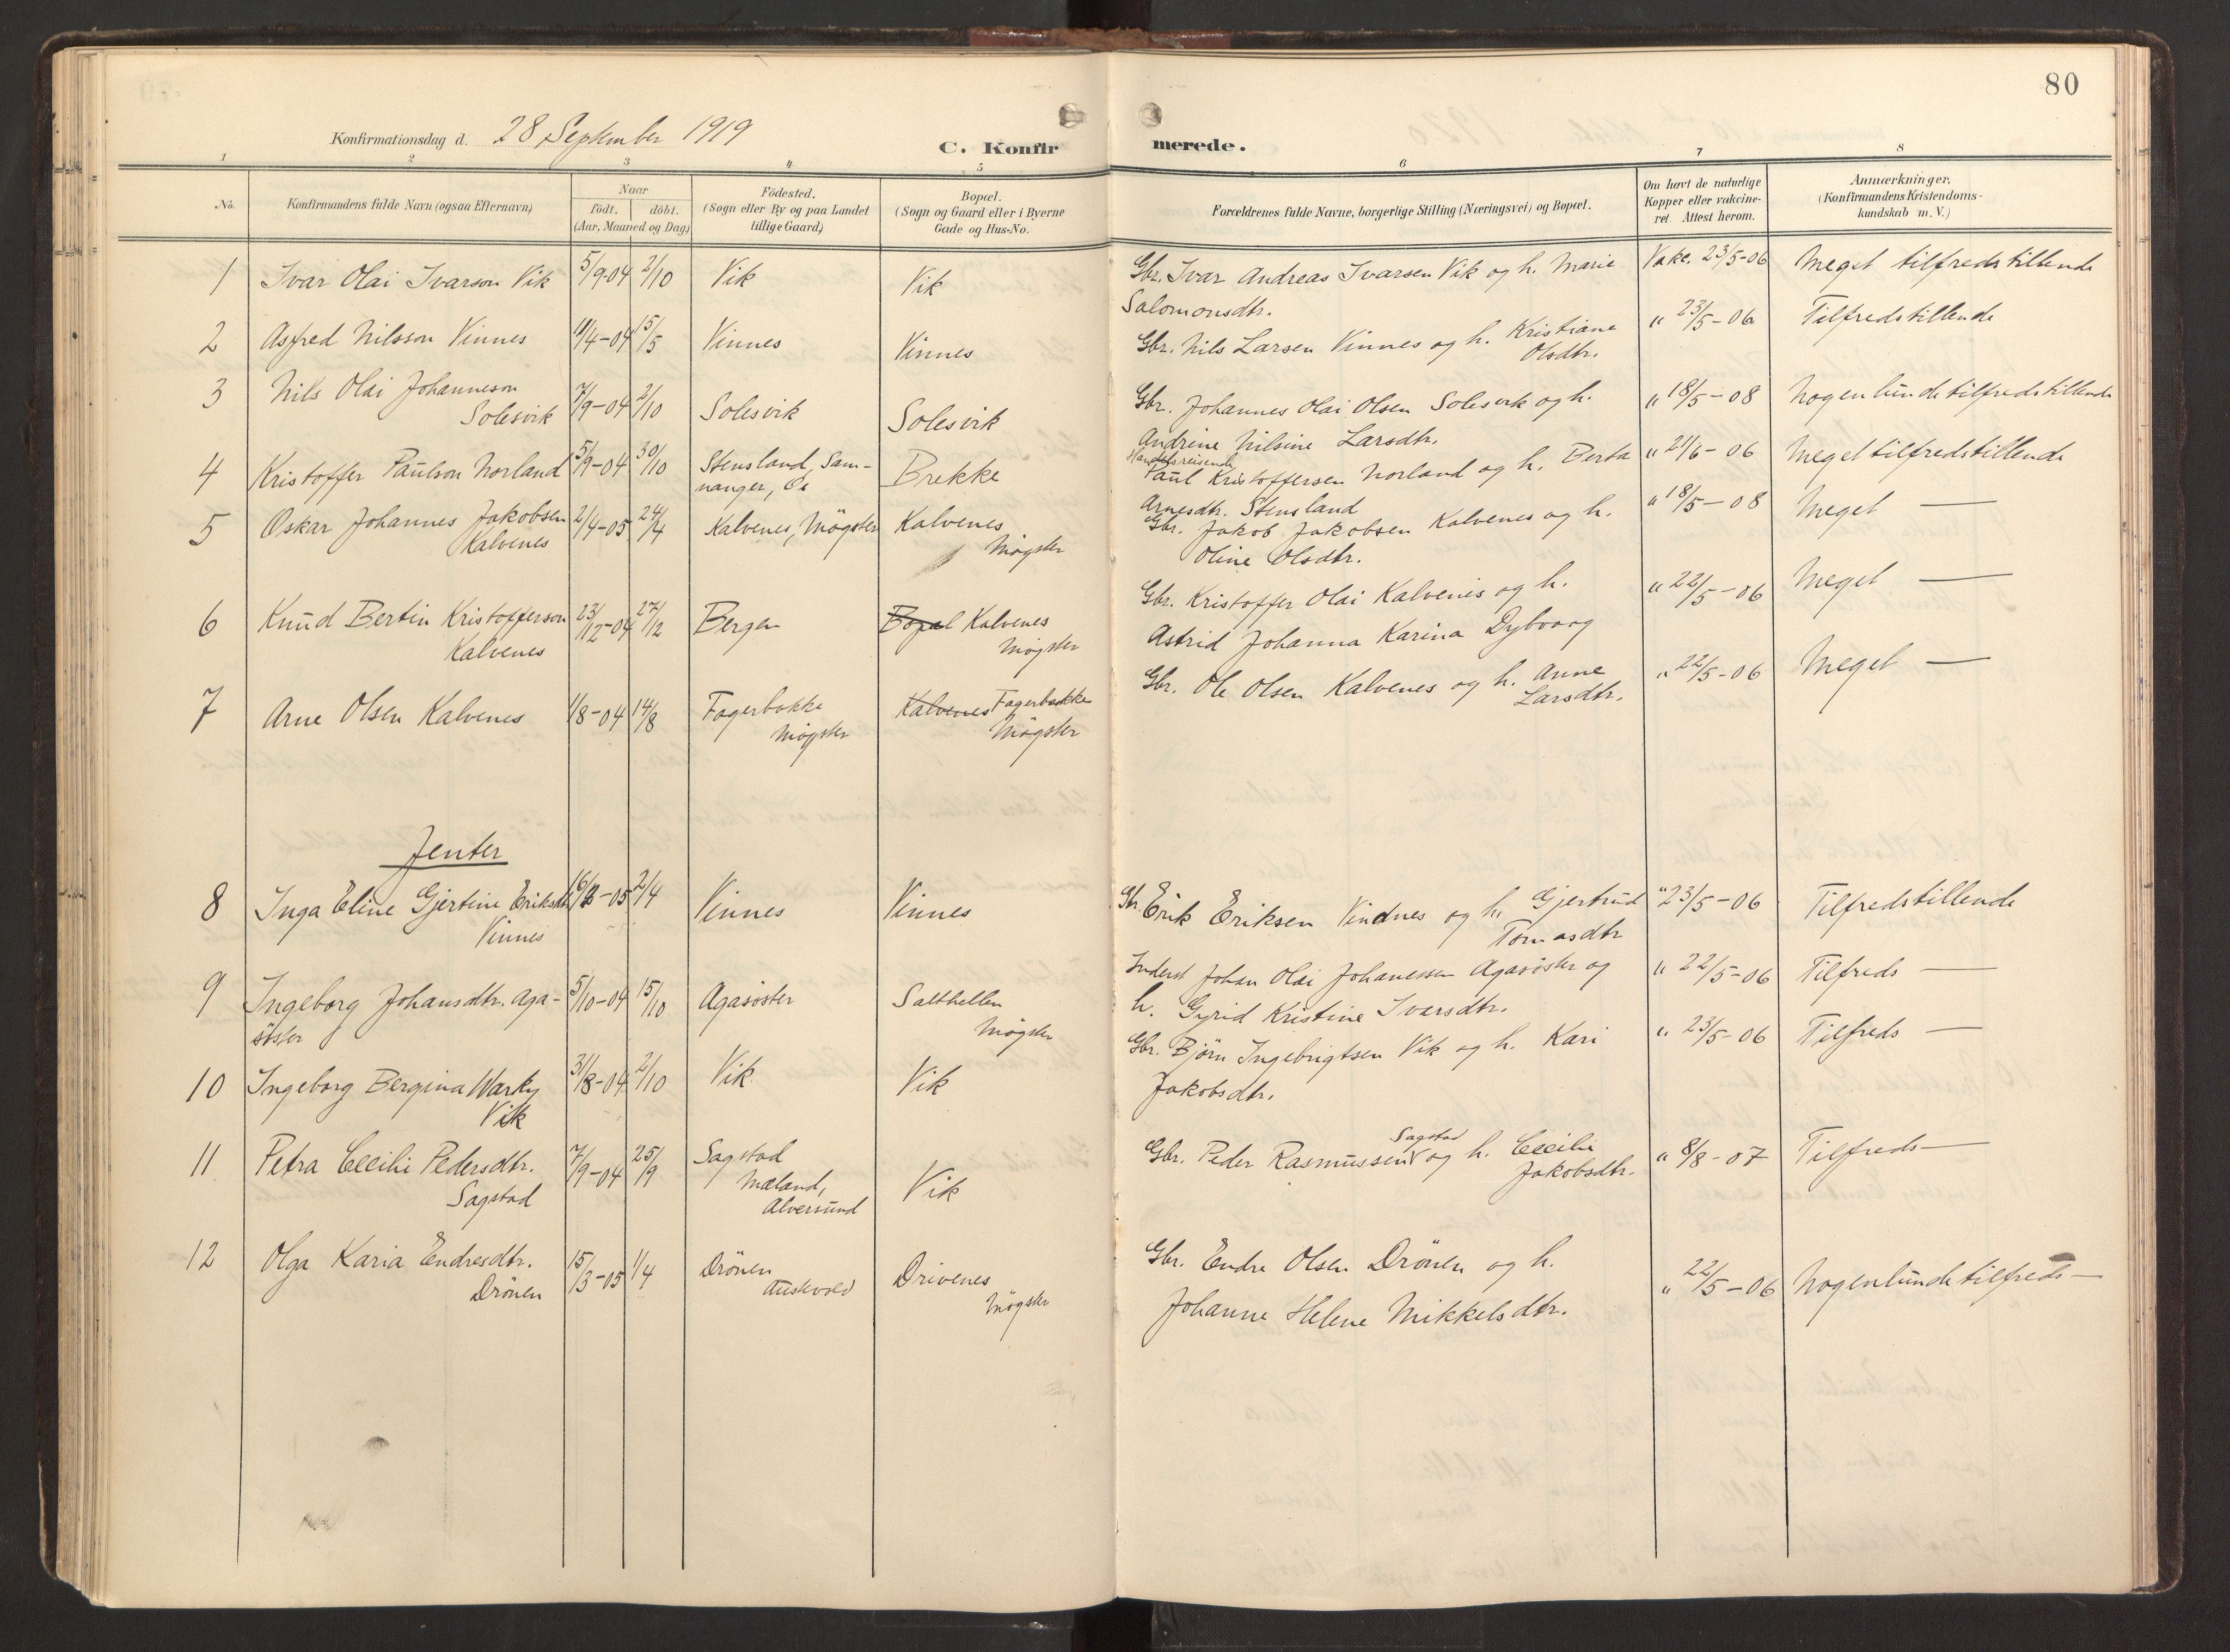 80
Konfirmationsdag d. 28 September 1919
C. Konfirmerede.
1 2 3 4 5 6 7 8
No.
Konfirmandens fulde Navn (ogsaa Efternavn)
Naar
födt. döbt.
(Aar, Maaned og Dag)
Födested.
(Sogn eller By og paa Landet
tillige Gaard)
Bopæl.
(Sogn og Gaard eller i Byerne
Gade og Hus-No.
Forældrenes fulde Navne, borgerlige Stilling (Næringsvei) og Bopæl.
Om havt de naturlige
Kopper eller vakcine-
ret Attest herom.
Anmærkninger.
(Konfirmandens Kristendoms-
kundskab m. V.)
1 Ivar Olai Ivarson Vik 5/9-04 2/10 Vik Vik Gbr. Ivar Andreas Ivarsen Vik og h. Marie Vakc. 23/5-06 Meget tilfredstillende
Salomonsdtr.
2 Asfred Nilsson Vinnes 11/4-04 15/5 Vinnes Vinnes Gbr. Nils Larsen Vinnes og h. Kristiane " 23/5-06 Tilfredstillende
Olsdtr.
3 Nils Olai Johanneson
Solesvik 7/9-04 2/10 Solesvik Solesvik Gbr. Johannes Olai Olsen Solesvik og h. " 18/5-08 Nogenlunde tilfredstillende
Andrine Nilsine Larsdtr.
Handelsreisende
4 Kristoffer Paulson Norland 5/9-04 30/10 Stensland, Sam-
nanger, Os Brekke Paul Kristoffersen Norland og h. Berta " 21/6-06 Meget tilfredstillende
Arnesdtr. Stensland
5 Oskar Johannes Jakobsen
Kalvenes 2/4-05 24/4 Kalvenes, Mögster Kalvenes
Mögster Gbr. Jakob Jakobsen Kalvenes og h. " 18/5-08 Meget —
Oline Olsdtr.
6 Knud Bertin Kristofferson
Kalvenes 23/12-04 27/12 Bergen Bopæl Kalvenes
Mögster Gbr. Kristoffer Olai Kalvenes og h. " 22/5-06 Meget —
Astrid Johanna Karina Dybvaag
7 Arne Olsen Kalvenes 1/8-04 14/8 Fagerbakke
Mögster Kalvenes Fagerbakke
Mögster Gbr. Ole Olsen Kalvenes og h. Anne " 22/5-06 Meget —
Larsdtr.
Jenter
8 Inga Eline Gjertine Eriksdtr.
Vinnes -05 2/4 Vinnes Vinnes Gbr. Erik Eriksen Vindnes og h. Gjertrud " 23/5-06 Tilfredstillende
Tomasdtr
9 Ingeborg Johansdtr. Aga-
söster 5/10-04 15/10 Agasöster Salthellen
Mögster Inderst Johan Olai Johanessen Agasöster og " 22/5-06 Tilfreds —
h. Gyrid Kristine Ivarsdtr.
10 Ingeborg Bergina
Vik 31/8-04 2/10 Vik Vik Gbr. Björn Ingebrigtsen Vik og h. Kari " 23/5-06 Tilfreds —
Jakobsdtr.
11 Petra Cecilie Pedersdtr.
Sagstad 7/9-04 25/9 Sagstad
Mæland,
Alversund Vik Gbr. Peder Rasmussen Sagstad og h. Cecilie " 8/8-07 Tilfreds —
Jakobsdtr.
12 Olga Karia Endresdtr.
Drönen 15/3-05 1/4 Drönen
Austevold Drivenes
Mögster Gbr. Endre Olsen Drönen og h. " 22/5-06 Nogenlunde tilfreds —
Johanne Helene Mikkelsdtr.